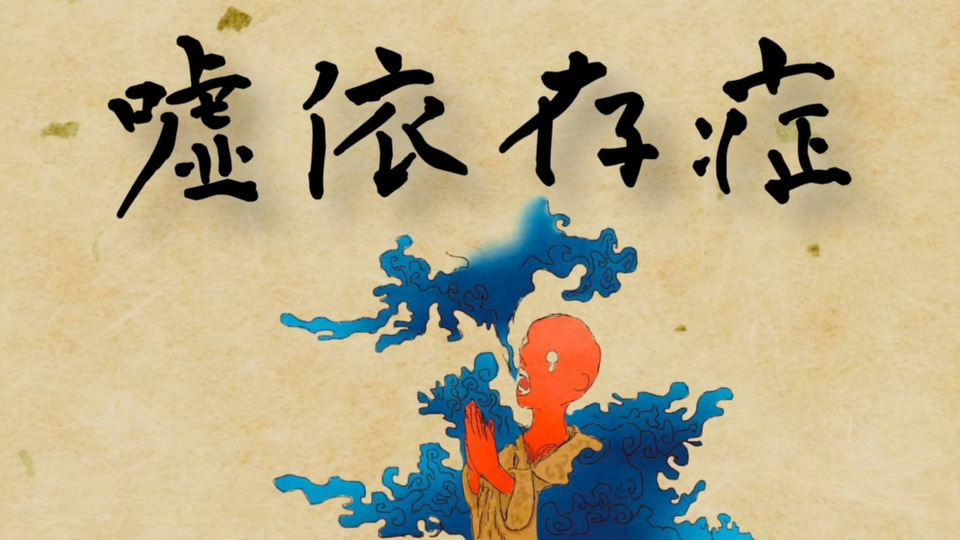 嘘依存症